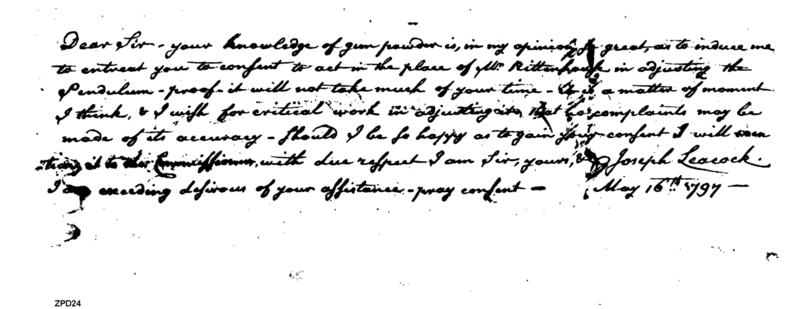 Dear Sir - your knowledge of gun powder is, in my opinion, so great, as to induce me
to entreat you to consent to act in the place of Mr. Rittenhouse in adjusting the
Pendulum - proof - it will not take much of your time - It is a matter of moment
I think, & I wish for critical work in adjusting it, that no complaints may be
made of its accuracy - Should I be so happy as to gain your consent I will
it to the Commissioner, with due respect I am Sir, yours, & Joseph Leacock.
I am exceeding desirous of your assistance - pray consent - May 16th 1797 -
ZPD24